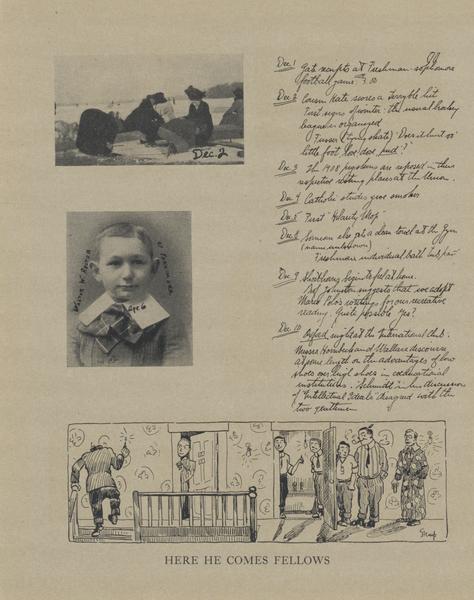 Dec. 1 Gate receipts at Freshman-Sophomore
football game
Dec. 2 Cousin Kate scores a terrible hit
First signs of winter: the usual hockey
league is organized
Fusser (tying skate) "Does it hurt oo
little foot
Dec. 3 The 1908 pigskins are reposed in their
respective resting places at the Union.
Dec. 4 Catholic studes give smoker
Dec. 5 First "Hilarity Hop"
Dec. 6 Someone else got a clean towel at the Gym
(name unknown)
Freshman individual ball
Dec. 9 begin to feel at home.
Prof. Johnston suggests that we adopt
Marco Polo's writings for our recreative
reading. Quite possible Yes?
Dec. 10 Oxford night at the International Club.
Messrs and Wallace discourse
at some length on the advantages of low
shoes over high shoes in coeducational
institutions. Schmidt in his discussion
of "Intellectual Ideals" disagreed with the
two gentlemen
Dec. 2
Dec 6
HERE HE COMES FELLOWS